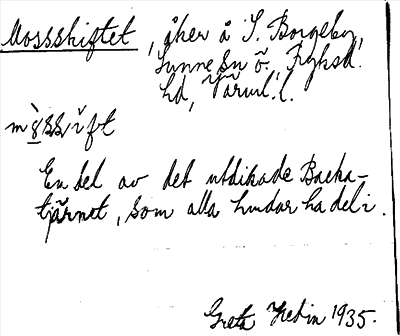 Mossskiftet, åker å S. Borgeby,
Sunne sn ö., Fryksd.
hd, Värml. l.
En del av det utdikade Backa-
tjärnet, som alla hundar ha del i.
Greta Hedin 1935.